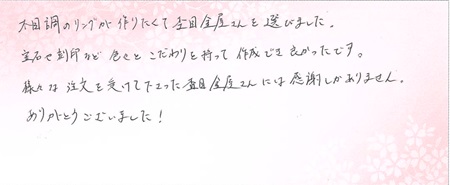 木目調のリングが作りたくて杢目金屋さんを選びました。
宝石や刻印など色々とこだわりを持って作成でき良かったです。
様々な注文を受けて下さった杢目金屋さんには感謝しかありません。
ありがとうございました!